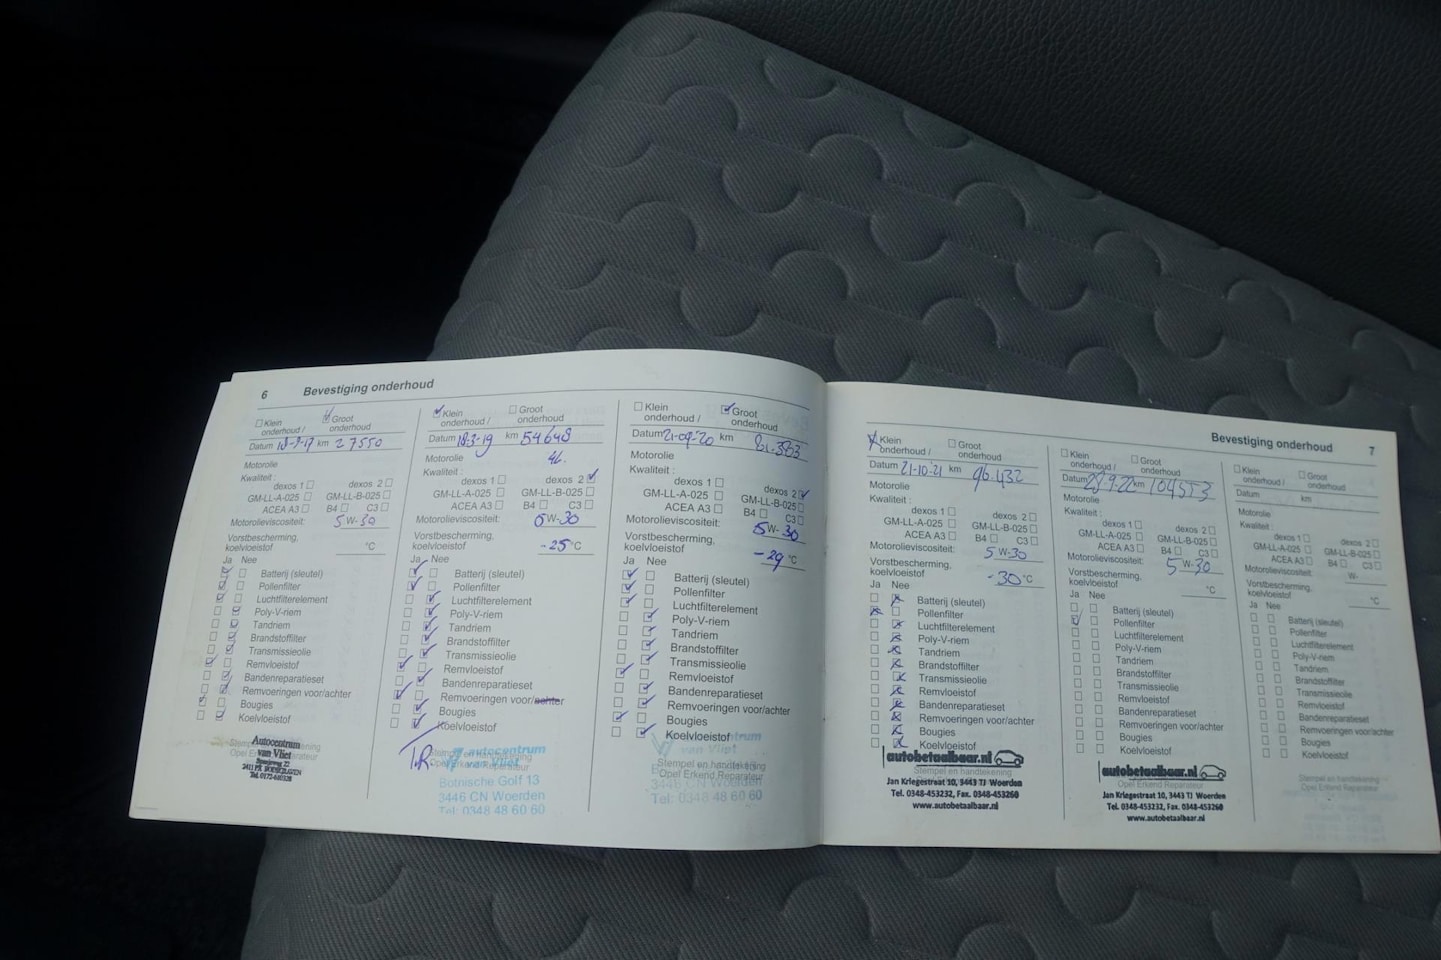 6 Bevestiging onderhoud
Klein onderhoud / Groot onderhoud
Datum 18-3-17 km 27550
Motorolie
Kwaliteit :
dexos 1 dexos 2
GM-LL-A-025 GM-LL-B-025
ACEA A3 B4 C3
Motorolieviscositeit: 5 W-30
Vorstbescherming, koelvloeistof °C
Ja Nee
Batterij (sleutel)
Pollenfilter
Luchtfilterelement
Poly-V-riem
Tandriem
Brandstoffilter
Transmissieolie
Remvloeistof
Bandenreparatieset
Remvoeringen voor/achter
Bougies
Koelvloeistof
Autocentrum
van Vliet
Klein onderhoud / Groot onderhoud
Datum 18-3-19 km 54648
Motorolie
Kwaliteit :
dexos 1 dexos 2
GM-LL-A-025 GM-LL-B-025
ACEA A3 B4 C3
Motorolieviscositeit: 5 W-30
Vorstbescherming, koelvloeistof -25 °C
Ja Nee
Batterij (sleutel)
Pollenfilter
Luchtfilterelement
Poly-V-riem
Tandriem
Brandstoffilter
Transmissieolie
Remvloeistof
Bandenreparatieset
Remvoeringen voor/achter
Bougies
Koelvloeistof
autocentrum
van Vliet
Botnische Golf 13
3446 CN Woerden
Tel: 0348 48 60 60
Klein onderhoud / Groot onderhoud
Datum 21-09-20 km 81.383
Motorolie
Kwaliteit :
dexos 1 dexos 2
GM-LL-A-025 GM-LL-B-025
ACEA A3 B4 C3
Motorolieviscositeit: 5 W- 30
Vorstbescherming, koelvloeistof -29 °C
Ja Nee
Batterij (sleutel)
Pollenfilter
Luchtfilterelement
Poly-V-riem
Tandriem
Brandstoffilter
Transmissieolie
Remvloeistof
Bandenreparatieset
Remvoeringen voor/achter
Bougies
Koelvloeistof
van Vliet
Stempel en handtekening
Opel Erkend Reparateur
3446 CN Woerden
Tel: 0348 48 60 60
Bevestiging onderhoud 7
Klein onderhoud / Groot onderhoud
Datum 21-10-21 km 96.432
Motorolie
Kwaliteit :
dexos 1 dexos 2
GM-LL-A-025 GM-LL-B-025
ACEA A3 B4 C3
Motorolieviscositeit: 5 W-30
Vorstbescherming, koelvloeistof -30 °C
Ja Nee
Batterij (sleutel)
Pollenfilter
Luchtfilterelement
Poly-V-riem
Tandriem
Brandstoffilter
Transmissieolie
Remvloeistof
Bandenreparatieset
Remvoeringen voor/achter
Bougies
Koelvloeistof
autobetaalbaar.nl
Stempel en handtekening
Jan Kriegestraat 10, 3443 TJ Woerden
Tel. 0348-453232, Fax. 0348-453260
www.autobetaalbaar.nl
Klein onderhoud / Groot onderhoud
Datum 28-9-22 km 104553
Motorolie
Kwaliteit :
dexos 1 dexos 2
GM-LL-A-025 GM-LL-B-025
ACEA A3 B4 C3
Motorolieviscositeit: 5 W-30
Vorstbescherming, koelvloeistof °C
Ja Nee
Batterij (sleutel)
Pollenfilter
Luchtfilterelement
Poly-V-riem
Tandriem
Brandstoffilter
Transmissieolie
Remvloeistof
Bandenreparatieset
Remvoeringen voor/achter
Bougies
Koelvloeistof
autobetaalbaar.nl
Opel Erkend Reparateur
Jan Kriegestraat 10, 3443 TJ Woerden
Tel. 0348-453232, Fax. 0348-453260
www.autobetaalbaar.nl
Klein onderhoud / Groot onderhoud
Datum km
Motorolie
Kwaliteit :
dexos 1 dexos 2
GM-LL-A-025 GM-LL-B-025
ACEA A3 B4 C3
Motorolieviscositeit: W-
Vorstbescherming, koelvloeistof °C
Ja Nee
Batterij (sleutel)
Pollenfilter
Luchtfilterelement
Poly-V-riem
Tandriem
Brandstoffilter
Transmissieolie
Remvloeistof
Bandenreparatieset
Remvoeringen voor/achter
Bougies
Koelvloeistof
Stempel en handtekening
Opel Erkend Reparateur